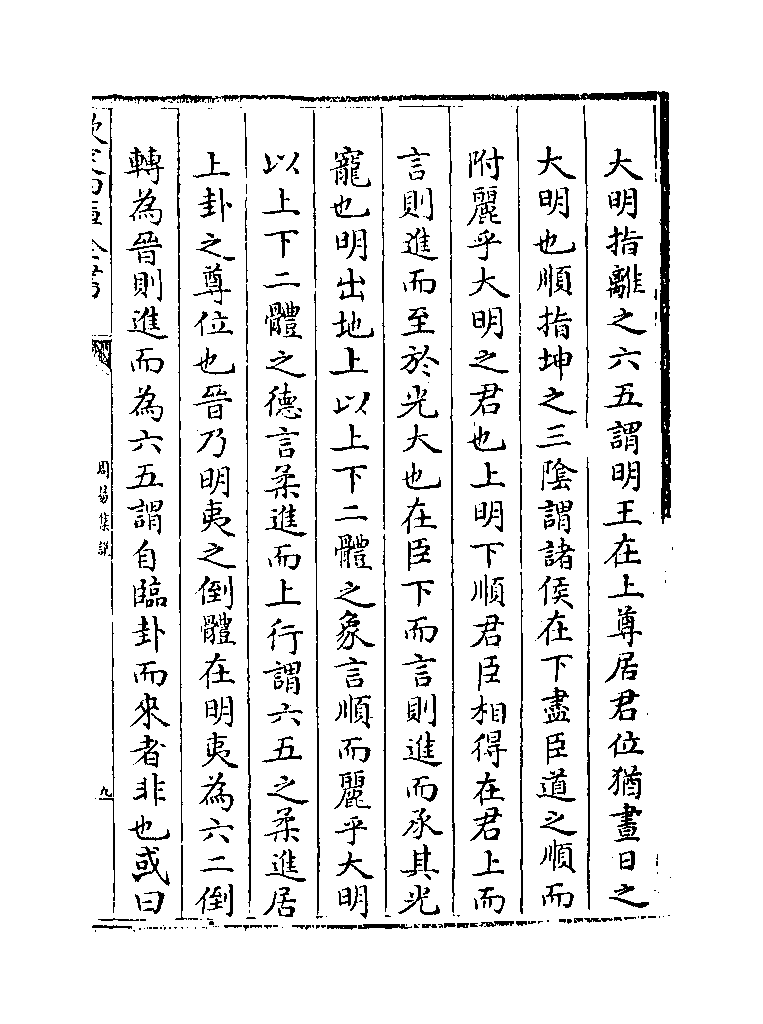 大明指離之六五謂明王在上尊居君位猶晝日之
大明也順指坤之三陰謂諸侯在下盡臣道之順而
附麗乎大明之君也上明下順君臣相得在君上而
言則進而至於光大也在臣下而言則進而承其光
寵也明出地上以上下二體之象言順而麗乎大明
以上下二體之德言柔進而上行謂六五之柔進居
上卦之尊位也晉乃明夷之倒體在明夷為六二倒
轉為晉則進而為六五謂自臨卦而來者非也或曰
欽定四庫全書
周易集説
九